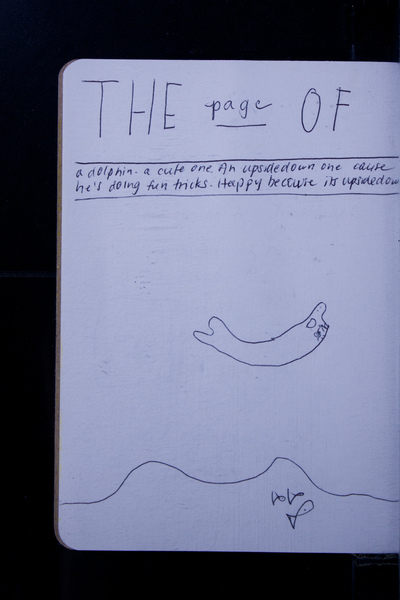 THE page OF
a dolphin. a cute one. An upsidedown one cause
he's doing fun tricks. Happy because its upsidedow